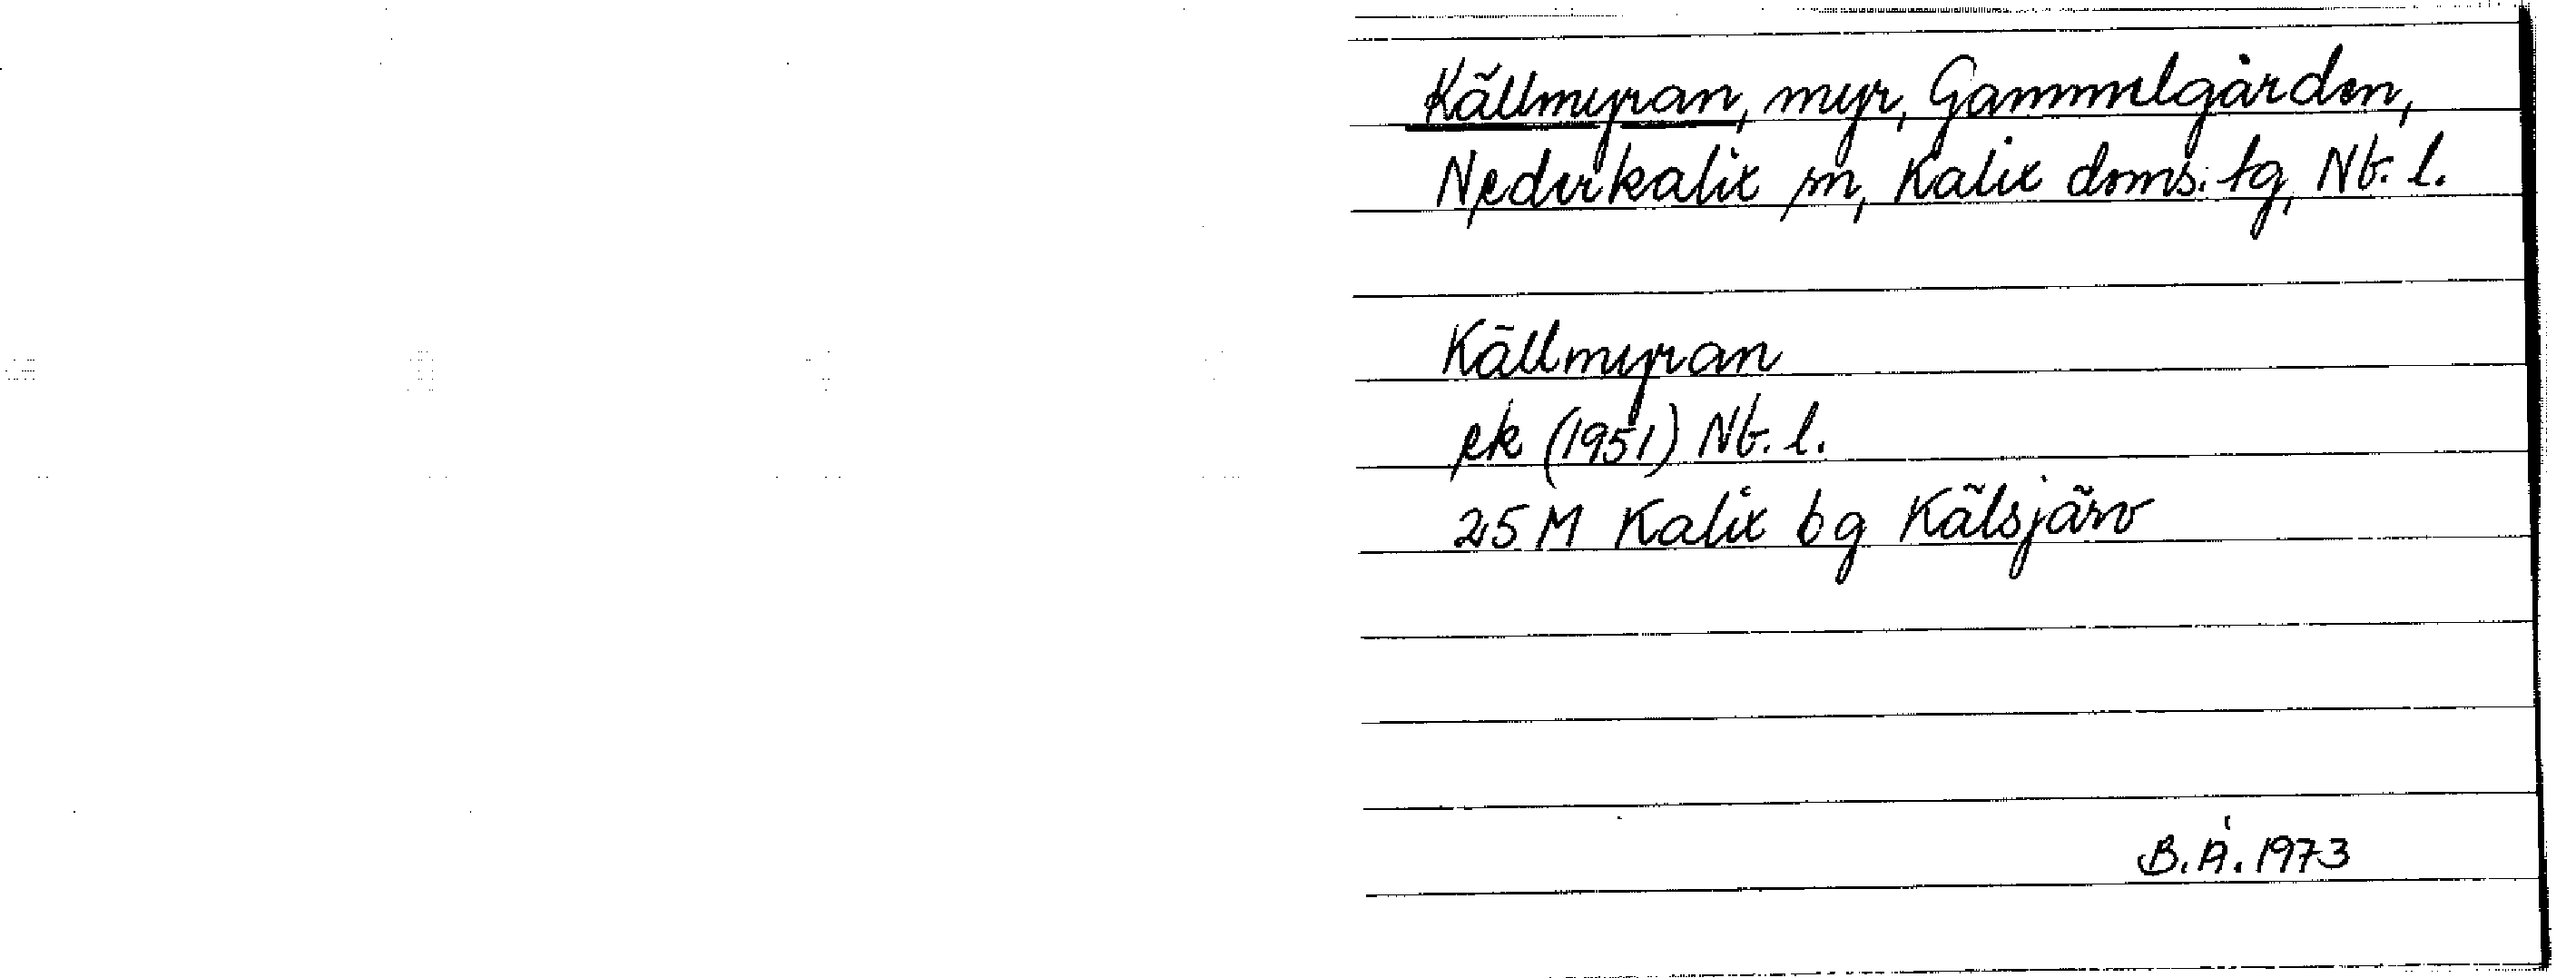 Källmyran, myr, Gammelgården,
Nederkalix sn, Kalix doms. tg, Nb. l.
Källmyran
ek (1951) Nb. l.
25 M Kalix bg Kälsjärv
B.Å. 1973